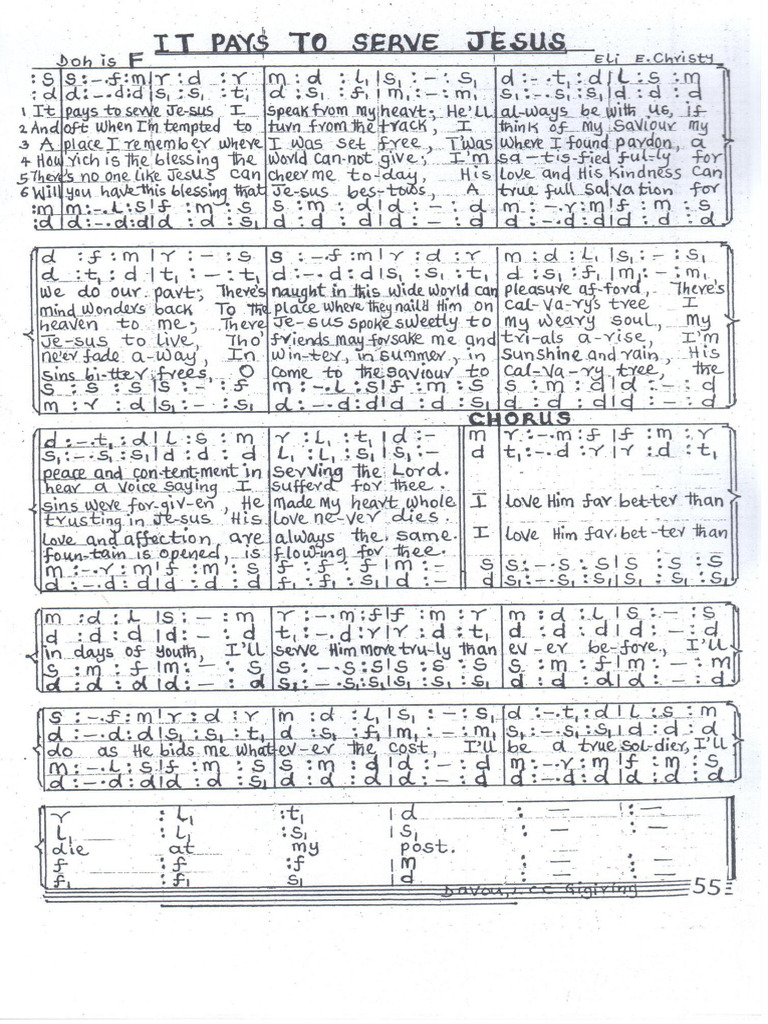 IT PAYS TO SERVE JESUS
Doh is F Eli E. Christy
: s | s : - . f : m | r : d : r | m : d : l₁ | s₁ : - : s₁ | d : - . t₁ : d | l : s : m
: d | d : - . d : d | s₁ : s₁ : t₁ | d : s₁ : f₁ | m₁ : - : m₁ | s₁ : - . s₁ : s₁ | d : d : d
1 It pays to serve Je-sus I speak from my heart; He'll al-ways be with us, if
2 And oft when I'm tempted to turn from the track, I think of my Saviour my
3 A place I remember where I was set free, T'was where I found pardon, a
4 How rich is the blessing the world can-not give; I'm sa-tis-fied ful-ly for
5 There's no one like Jesus can cheer me to-day, His love and His Kindness can
6 Will you have this blessing that Je-sus bes-tows, A true full salvation for
: m | m : - . l : s | f : m : s | s : m : d | d : - : d | m : - . r : m | f : m : s
: d | d : - . d : d | d : d : d | d : d : d | d : - : d | d : - . d : d | d : d : d
d : f : m | r : - : s | s : - . f : m | r : d : r | m : d : l₁ | s₁ : - : s₁
d : t₁ : d | t₁ : - : t₁ | d : - . d : d | s₁ : s₁ : t₁ | d : s₁ : f₁ | m₁ : - : m₁
We do our part; There's naught in this wide world can pleasure af-ford, There's
mind wonders back To the place where they nail'd Him on Cal-Va-ry's tree I
heaven to me; There Je-sus spoke sweetly to my weary soul, My
Je-sus to live, Tho' friends may forsake me and tri-als a-rise, I'm
ne'er fade a-way, In win-ter, in summer, in sunshine and rain, His
sins bi-tter frees, O come to the saviour to cal-va-ry tree, the
s : s : s | s : - : f | m : - . l : s | f : m : s | s : m : d | d : - : d
m : r : d | s₁ : - : s₁ | d : - . d : d | d : d : s₁ | d : d : d | d : - : d
CHORUS
d : - . t₁ : d | l : s : m | r : l₁ : t₁ | d : - | m | r : - . m : f | f : m : r
s₁ : - . s₁ : s₁ | d : d : d | l₁ : l₁ : s₁ | s₁ : - | d | t₁ : - . d : r | r : d : t₁
peace and con-tent-ment in serving the Lord.
hear a voice saying I sufferd for thee.
sins were for-giv-en, He made my heart whole I love Him far bet-ter than
trusting in Je-sus His love ne-ver dies.
love and affection are always the same. I love Him far bet-ter than
foun-tain is opened, is flowing for thee.
m : - . r : m | f : m : s | f : f : f | m : - | s | s : - . s : s | s : s : s
d : - . d : d | d : d : d | f₁ : f₁ : s₁ | d : - | d | s₁ : - . s₁ : s₁ | s₁ : s₁ : s₁
m : d : l | s : - : m | r : - . m : f | f : m : r | m : d : l | s : - : s
d : d : d | d : - : d | t₁ : - . d : r | r : d : t₁ | d : d : d | d : - : d
in days of youth, I'll serve Him more tru-ly than ev-er be-fore, I'll
s : m : f | m : - : s | s : - . s : s | s : s : s | s : m : f | m : - : m
d : d : d | d : - : d | s₁ : - . s₁ : s₁ | s₁ : s₁ : s₁ | d : d : d | d : - : d
s : - . f : m | r : d : r | m : d : l₁ | s₁ : - : s₁ | d : - . t₁ : d | l : s : m
d : - . d : d | s₁ : s₁ : t₁ | d : s₁ : f₁ | m₁ : - : m₁ | s₁ : - . s₁ : s₁ | d : d : d
do as He bids me what-ev-er the cost, I'll be a true sol-dier, I'll
m : - . l : s | f : m : s | s : m : d | d : - : d | m : - . r : m | f : m : s
d : - . d : d | d : d : s₁ | d : d : d | d : - : d | d : - . d : d | d : d : d
r : l₁ : t₁ | d : - : -
l₁ : l₁ : s₁ | s₁ : - : -
die at my post.
f : f : f | m : - : -
f₁ : f₁ s₁ | d : - : -
55